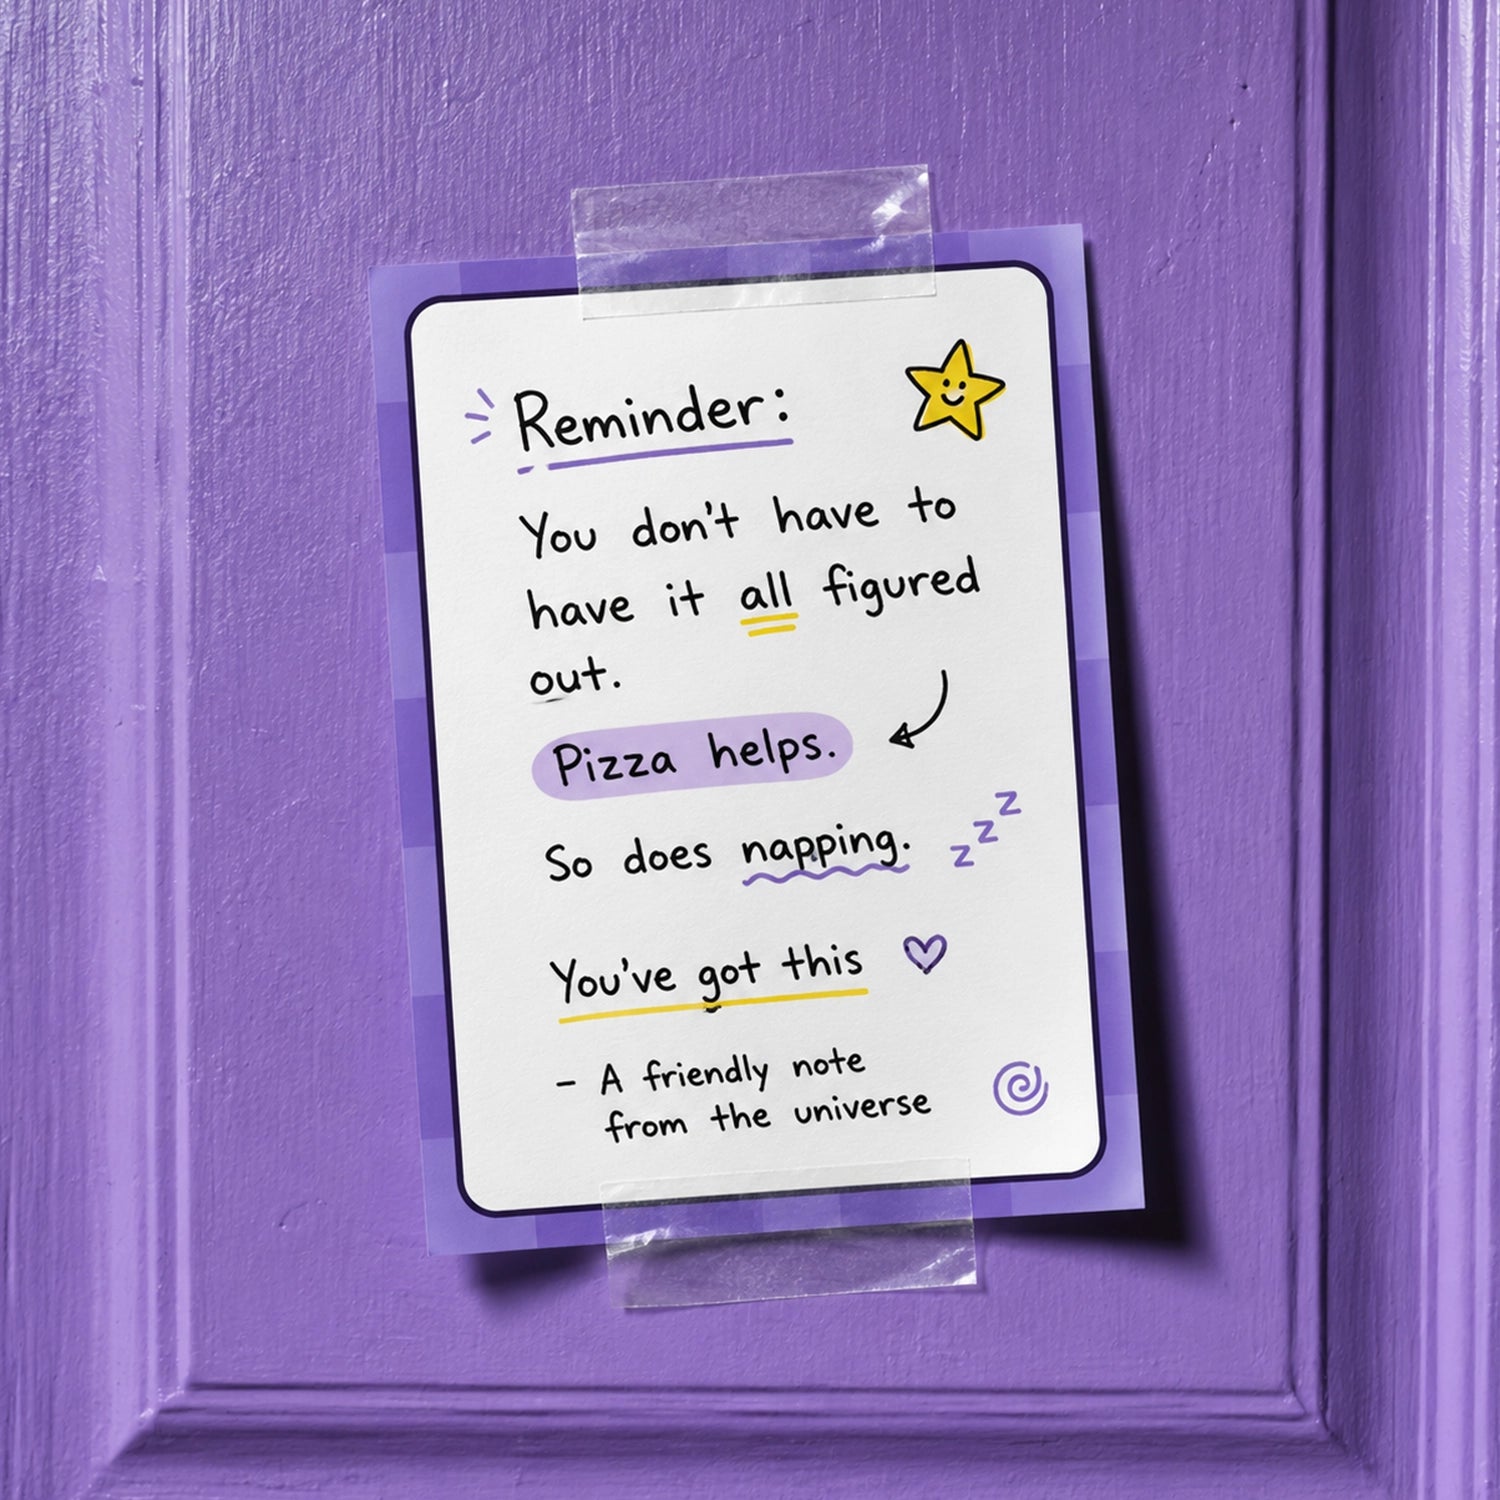 Reminder:
You don't have to
have it all figured
out.
Pizza helps.
So does napping.
z z z
You've got this
- A friendly note
from the universe